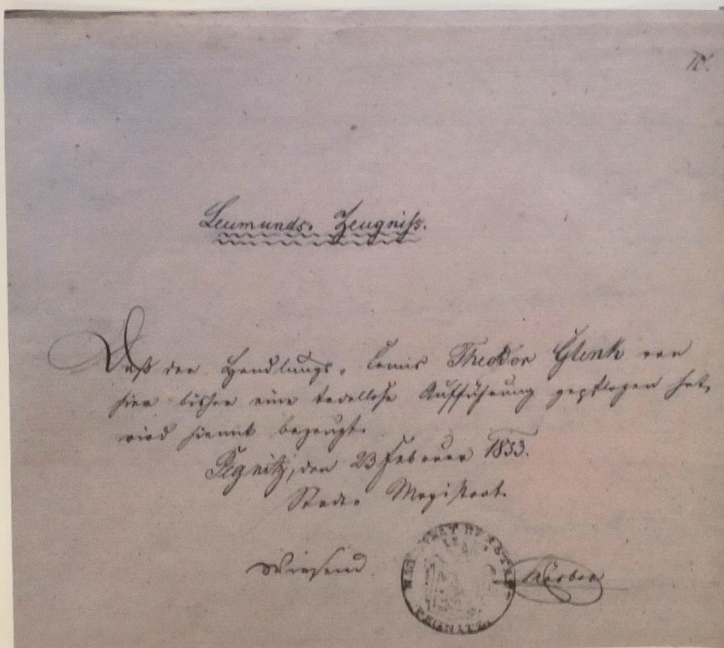 IV.
Leumunds-Zeugniß.
Daß der Handlungs-Comis Theodor Glenk von
hier bisher eine tadellose Aufführung gepflogen hat,
wird hiemit bezeugt.
Pegnitz, den 23 Februar 1853.
Stadt-Magistrat.
Wiesend.
PEGNITZ.